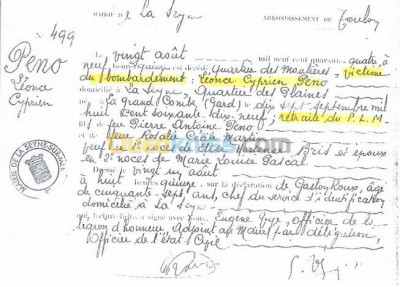 MAIRIE DE La Seyne ARRONDISSEMENT DE Toulon
N° 499
Peno
Léonce
Cyprien
Le vingt août mil neuf cent quarante-quatre, à
neuf heures est décédé Quartier des Moulières victime
du bombardement: Léonce Cyprien Peno
domicilié à La Seyne Quartier des Plaines
La Grand Combe (Gard) le dix sept septembre mil
huit cent soixante dix-neuf; retraité du P.L.M.
fils de feu Pierre Antoine Peno
feue Rosalie
Bris et époux
en 2es noces de Marie Louise Pascal
Dressé le vingt un août
à huit heures quinze sur la déclaration de Gaston Roux, âgé
de cinquante sept ans, chef du service d'identification
domicilié à La Seyne
lecture faite a signé avec Nous, Eugène Officier de la
légion d'honneur, Adjoint au Maire par délégation,
Officier de l'état Civil
MAIRIE DE LA SEYNE-SUR-MER